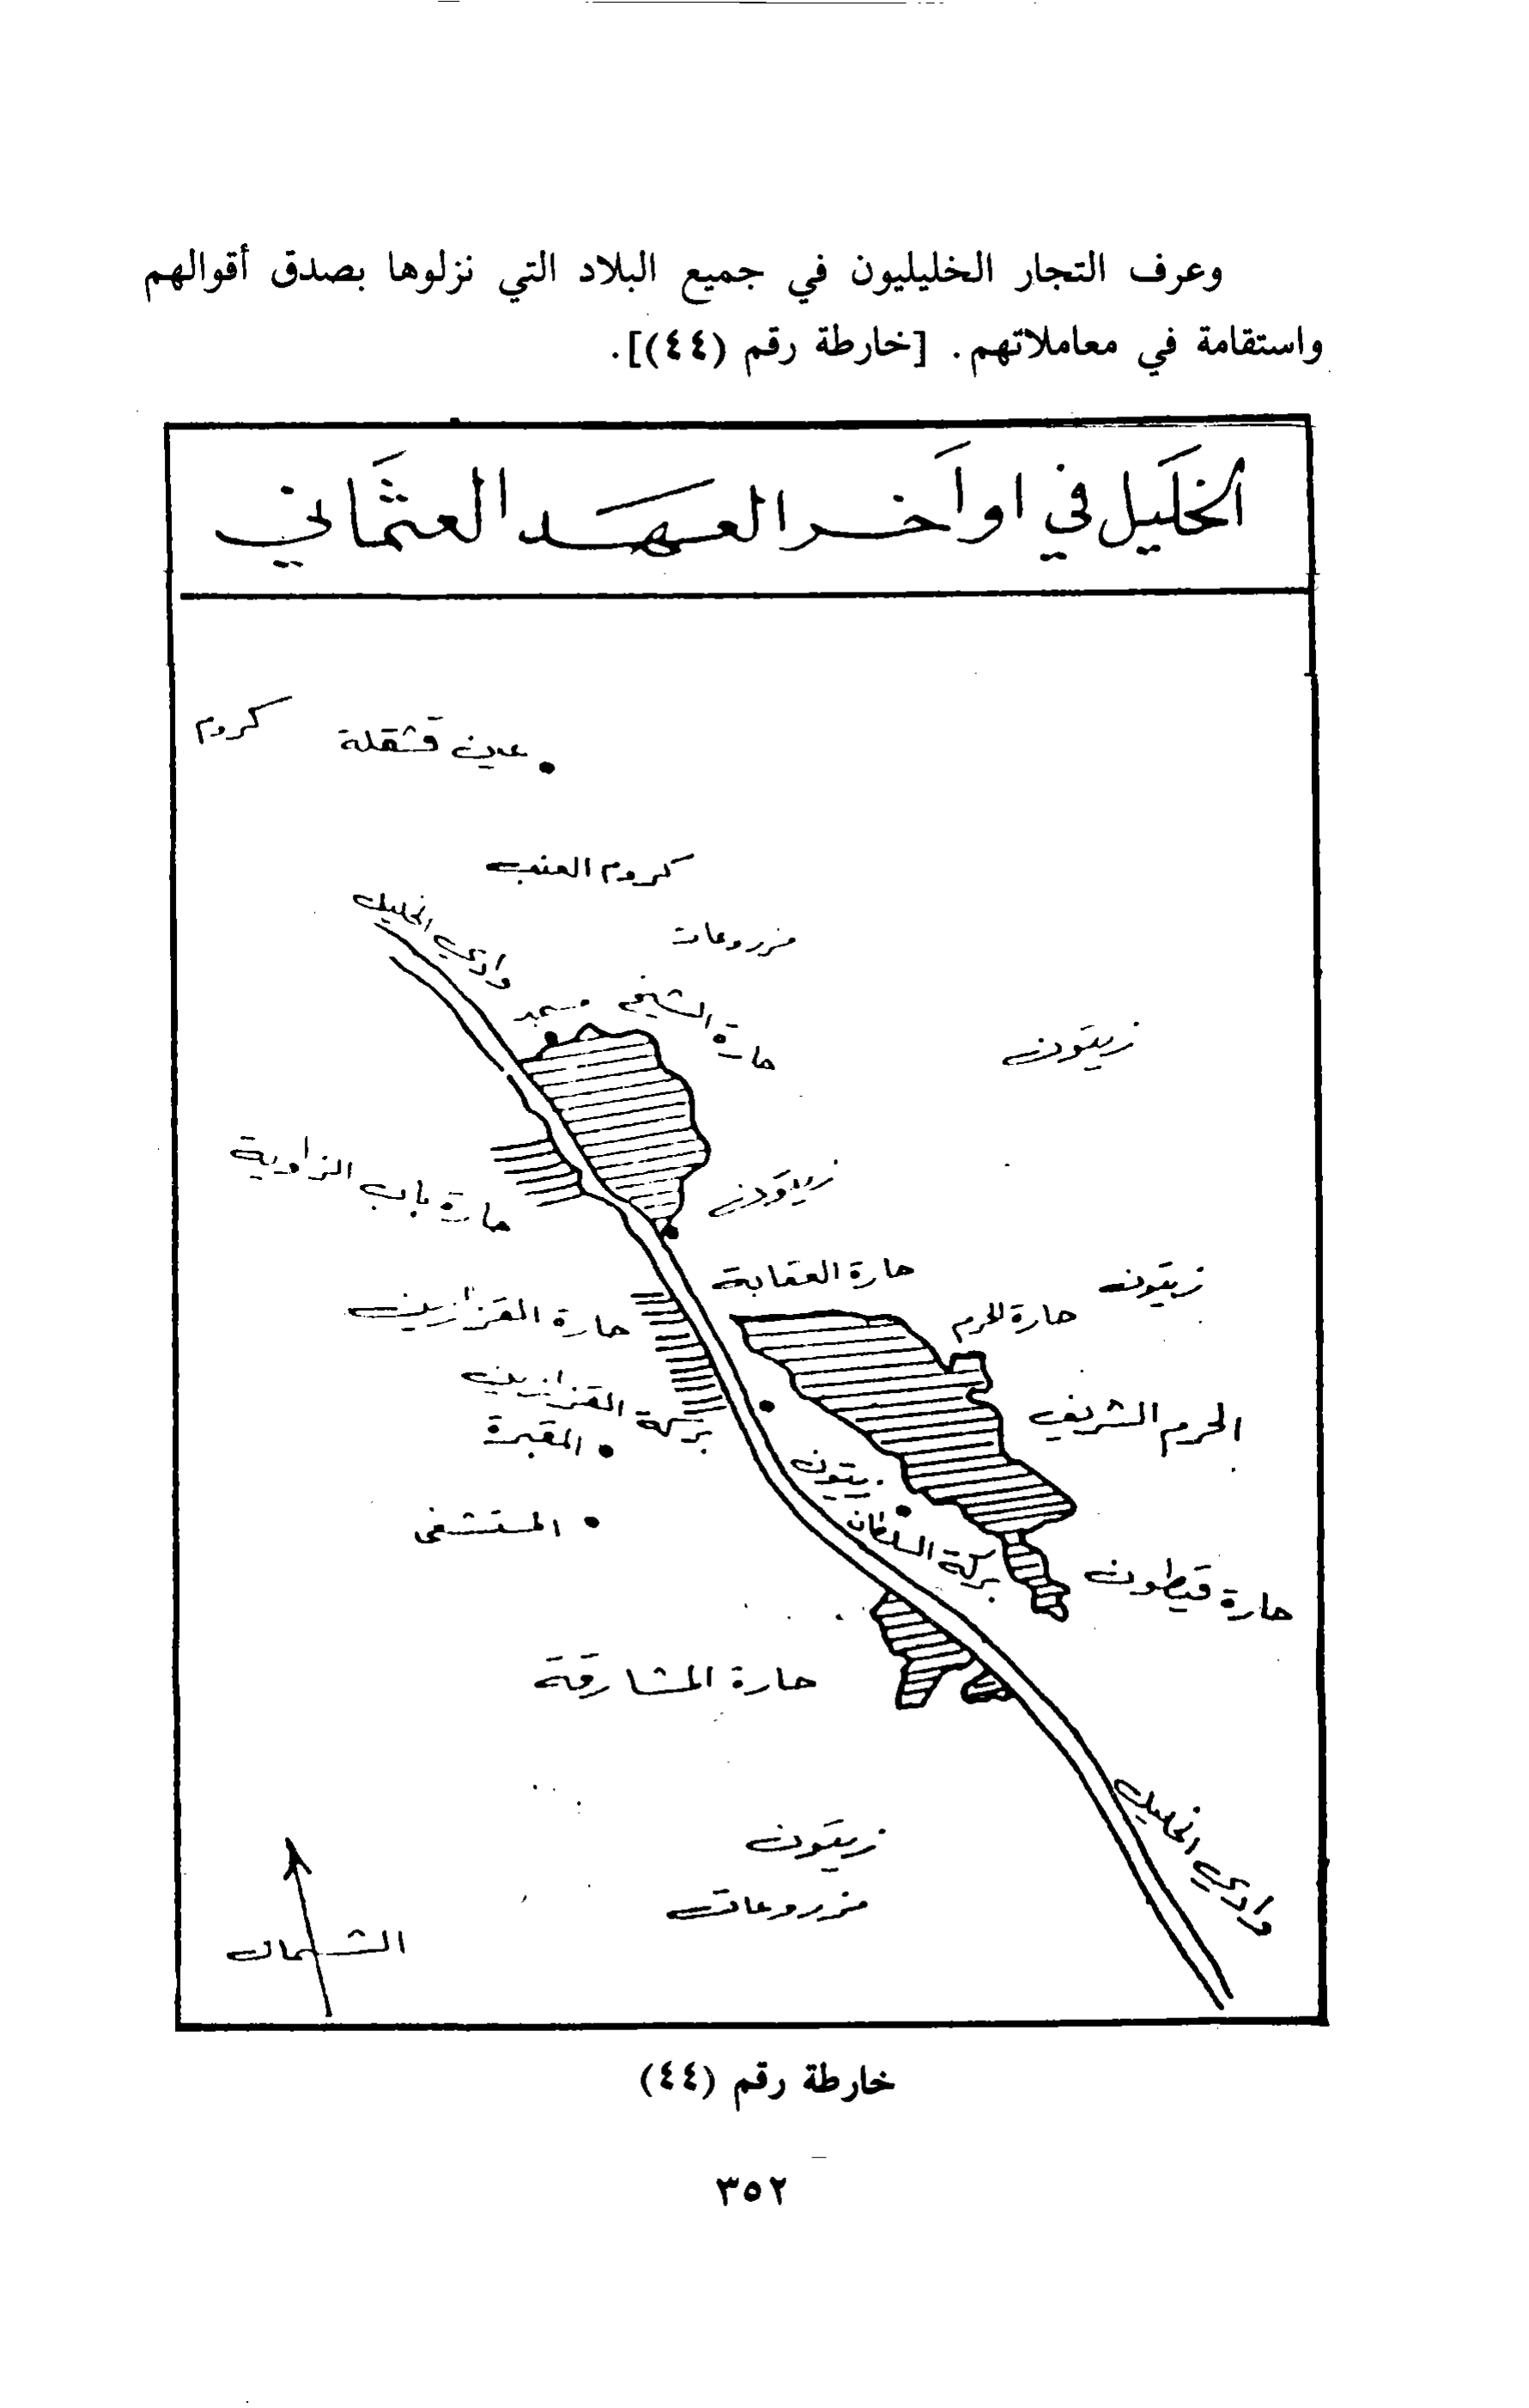 وعرف التجار الخليليون في جميع البلاد التي نزلوها بصدق أقوالهم
واستقامة في معاملاتهم. [خارطة رقم (٤٤)].
الخليل في اواخر العهد العثماني
كروم
عين قشقلة
كروم العنب
وادي الخليل
مزروعات
مسجد
حارة الشيخ
زيتون
حارة باب الزاوية
زيتون
حارة العقابة
زيتون
حارة القزازين
حارة الحرم
بركة القزازين
الحرم الشريف
المقبرة
زيتون
المستشفى
بركة السلطان
حارة قيطون
حارة المشارقة
وادي الخليل
زيتون
مزروعات
الشمال
خارطة رقم (٤٤)
٣٥٢